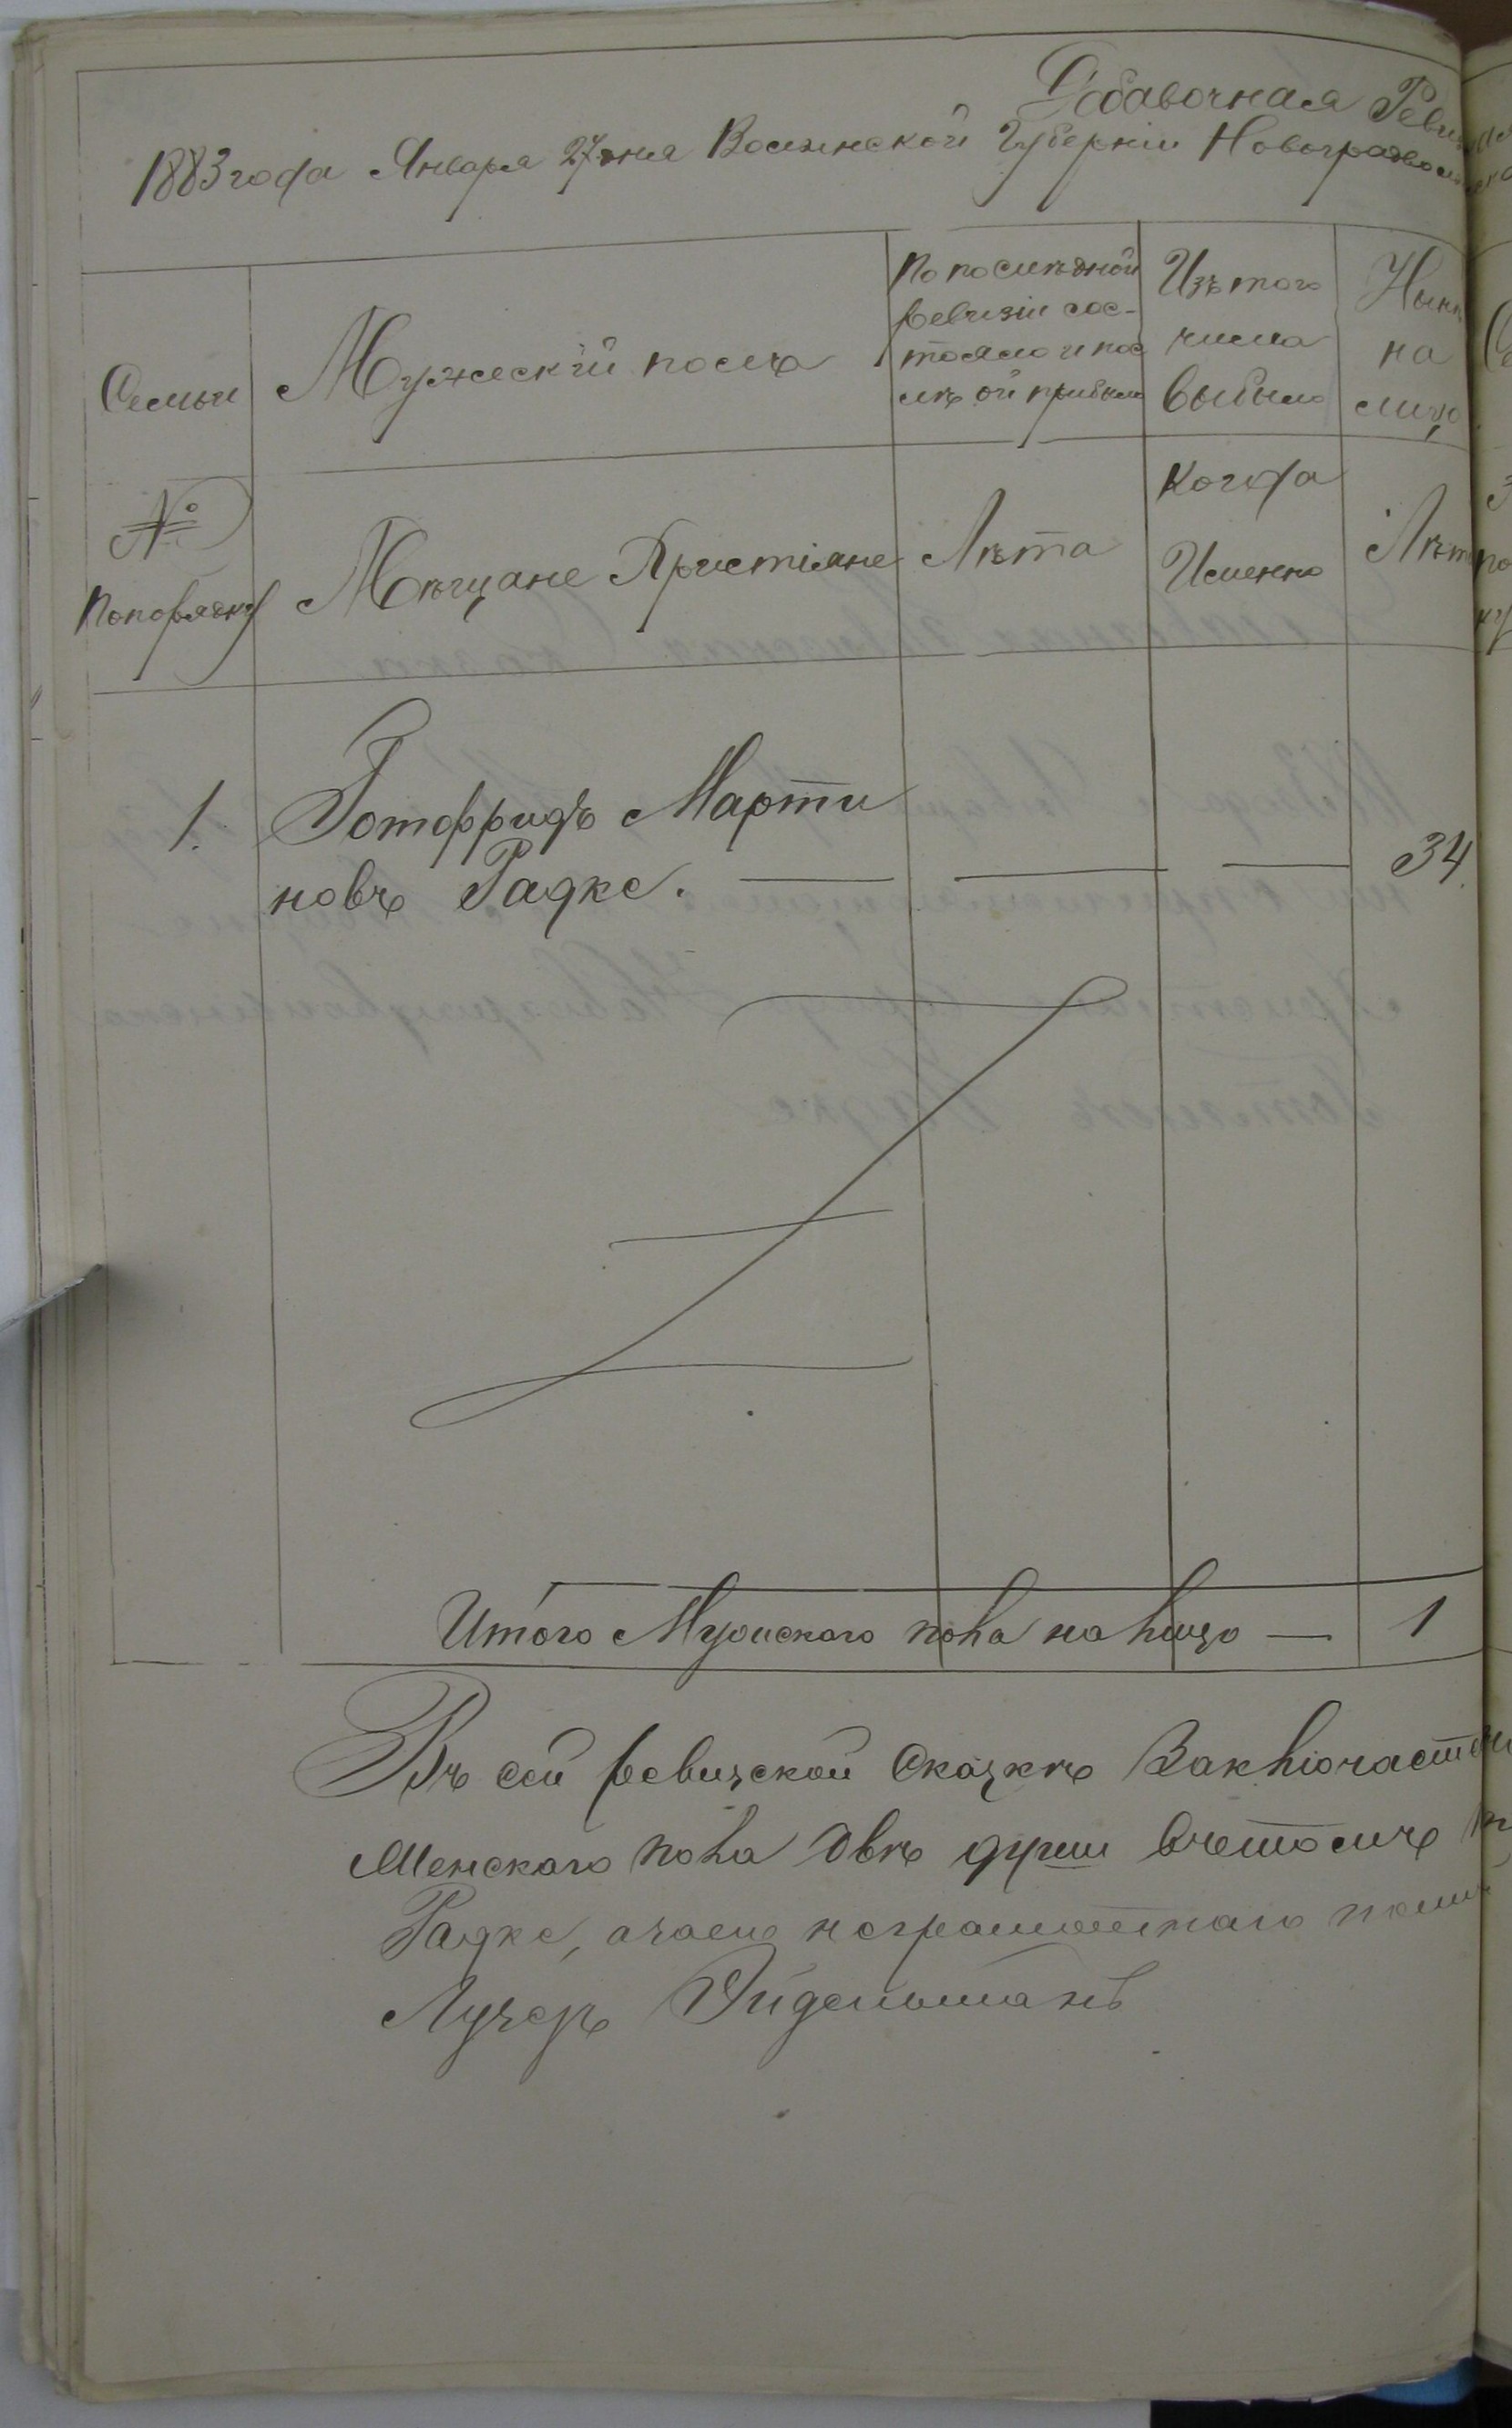 Добавочная Реви
1883 года Января 27 дня Волынской Губернiи Новоградвол
Семьи
Мужескiй полъ
По послѣдней
ревизiи сос-
тояло и пос
лѣ ой прибыло
Изъ того
числа
выбыло
Нынѣ
на
лицо
№
По порядку
Мѣщане Христiяне
Лѣта
когда
Именно
Лѣта
1.
Готфридъ Марти
новъ Радке.
34.
Итого Мужскаго пола на лицо — 1
Въ сей ревизской Сказкѣ Заключает
Женскаго пола двѣ души
Радке, а за его неграмотнаго
Лузеръ Эйдельманъ